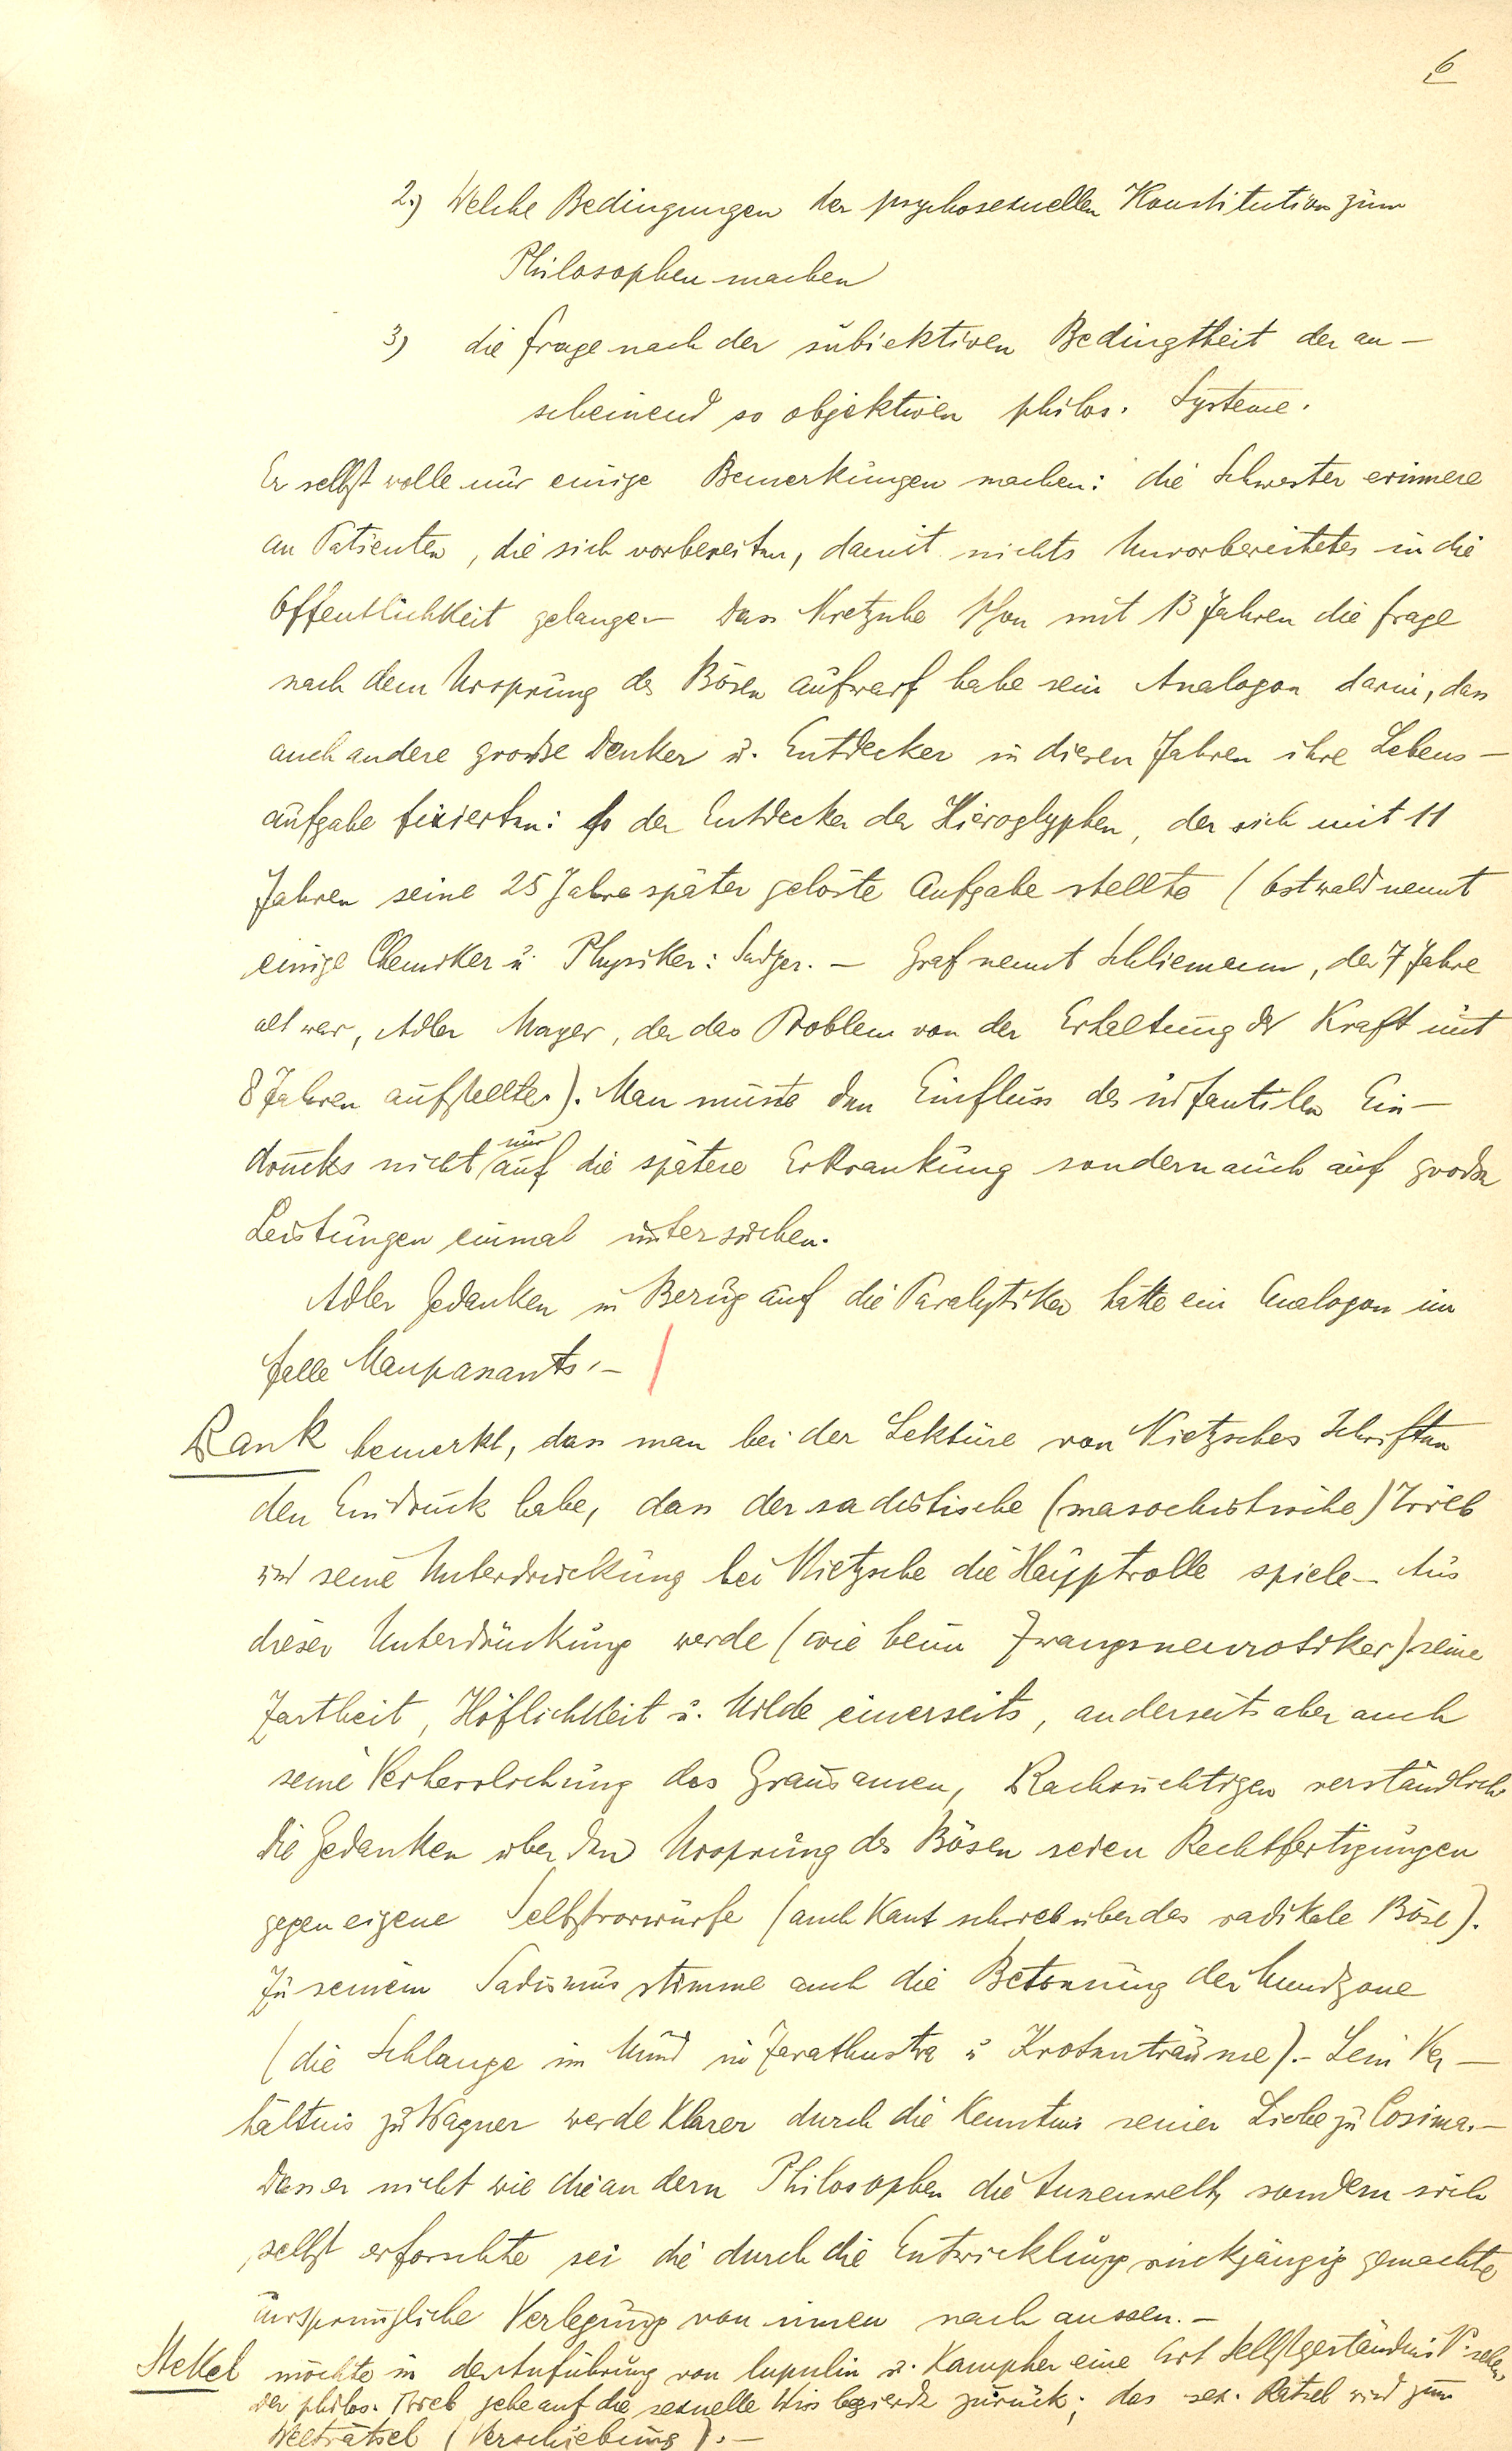 6
2.) Welche Bedingungen der psychosexuellen Konstitution zum
Philosophen machen
3) die Frage nach der subiektiven Bedingtheit der an-
scheinend so objektiven philos. Systeme.
Er selbst wolle nur einige Bemerkungen machen: die Schwester erinnere
an Patienten, die sich vorbereiten, damit nichts Unvorbereitetes in die
Öffentlichkeit gelange.- Dass Nietzsche schon mit 13 Jahren die Frage
nach dem Ursprung des Bösen aufwarf habe sein Analogon darin, dass
auch andere grosse Denker u. Entdecker in diesen Jahren ihre Lebens-
aufgabe fixierten: So der Entdecker der Hieroglyphen, der sich mit 11
Jahren seine 25 Jahre später gelöste Aufgabe stellte (Ostwald nennt
einige Chemiker u. Physiker: Sadger. - Graf nennt Schliemann, der 7 Jahre
alt war, Adler Mayer, der das Problem von der Erhaltung der Kraft mit
8 Jahren aufstellte.). Man müsste den Einfluss des infantilen Ein-
drucks nicht nur auf die spätere Erkrankung sondern auch auf grosse
Leistungen einmal untersuchen.
Adler Gedanken in Bezug auf die Paralytiker hätte ein Analogon im
Falle Maupassants.-
Rank bemerkt, dass man bei der Lektüre von Nietzsches Schriften
den Eindruck habe, dass der sadistische (masochistische) Trieb
und seine Unterdrückung bei Nietzsche die Hauptrolle spiele.- Aus
dieser Unterdrückung werde (wie beim Zwangsneurotiker) seine
Zartheit, Höflichkeit u. Milde einerseits, anderseits aber auch
seine Verherrlichung des Grausamen, Rachsüchtigen verständlich
die Gedanken über den Ursprung des Bösen seien Rechtfertigungen
gegen eigene Selbstvorwürfe (auch Kant schrieb über das radikale Böse).
Zu seinem Sadismus stimme auch die Betonung der Mundzone
(die Schlange im Mund in Zarathustra u Krötenträume).- Sein Ver-
hältnis zu Wagner werde klarer durch die Kenntnis seiner Liebe zu Cosima.-
Dass er nicht wie die andern Philosophen die Aussenwelt, sondern sich
selbst erforschte sei die durch die Entwicklung rückgängig gemachte
ursprüngliche Verlegung von innen nach aussen.-
Stekel möchte in der Anführung von lupulin u. Kampher eine Art Selbstgeständnis N. sehen
Der philos. Trieb gehe auf die sexuelle Wissbegierde zurück; das sex. Rätsel wird zum
Welträtsel (Verschiebung).-